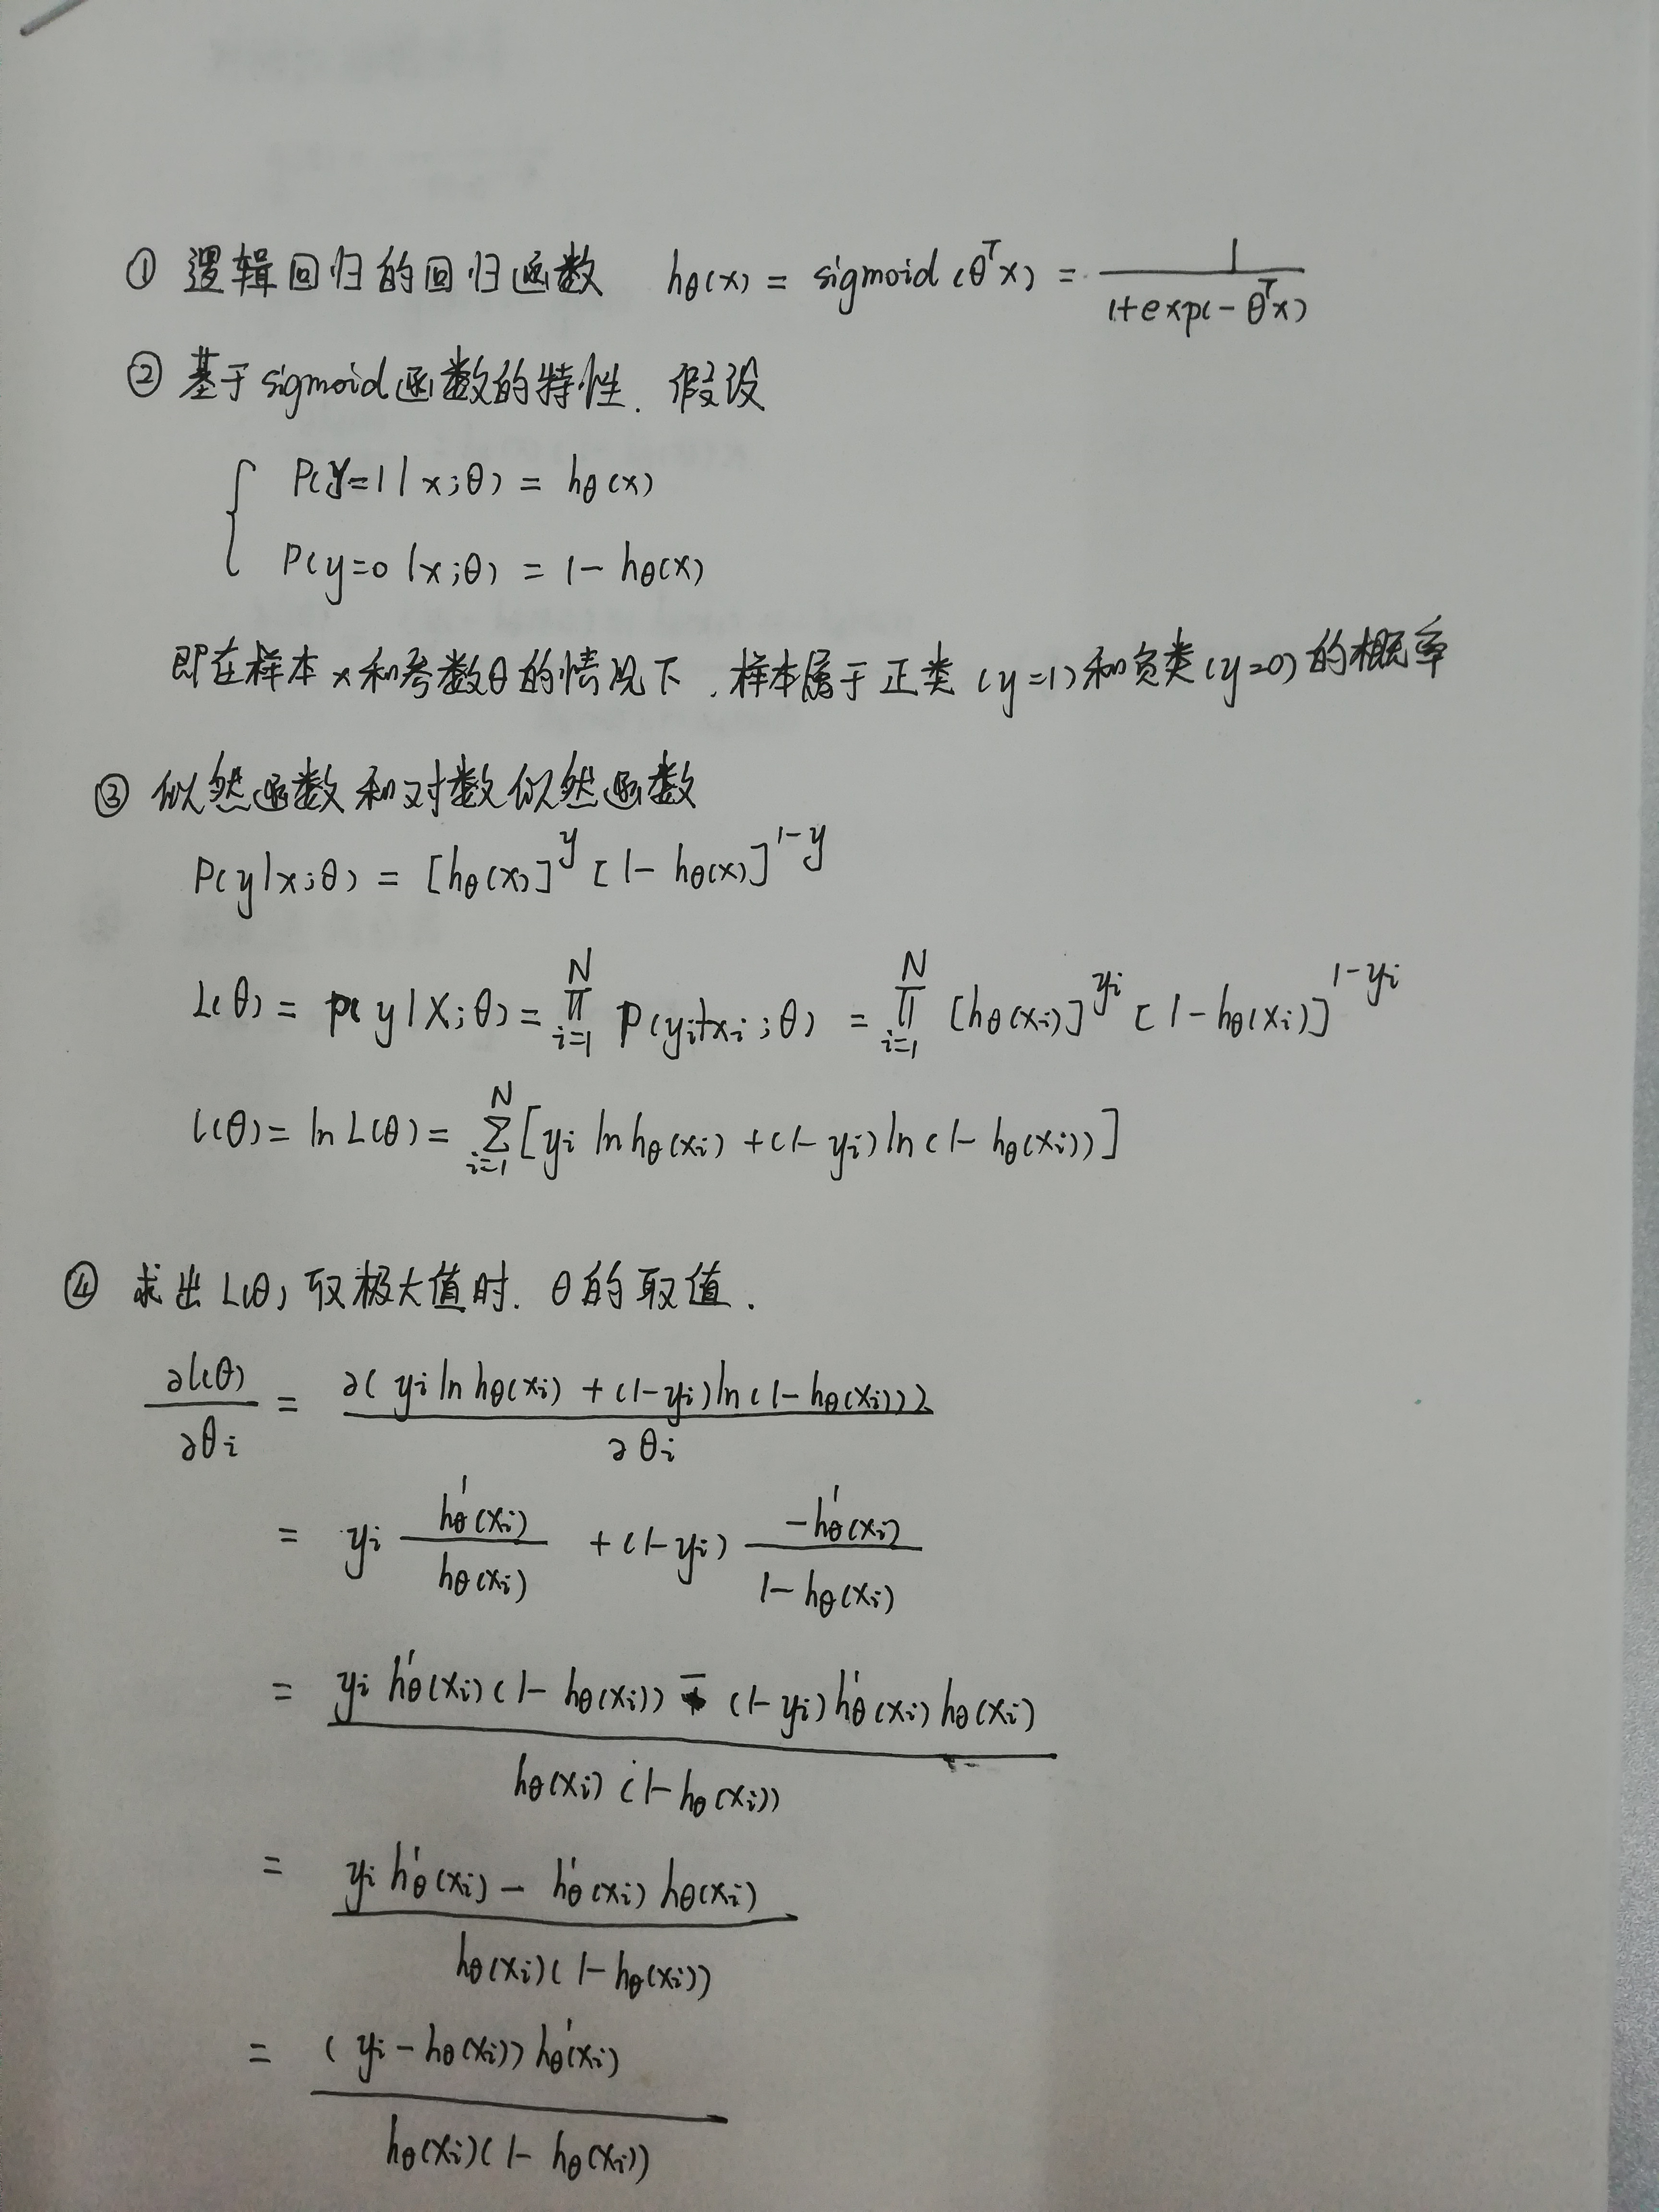 ① 逻辑回归的回归函数 hθ(x) = sigmoid(θᵀx) = 1 / (1+exp(-θᵀx))
② 基于sigmoid函数的特性. 假设
{ P(y=1|x;θ) = hθ(x)
P(y=0|x;θ) = 1-hθ(x)
即在样本x和参数θ的情况下,样本属于正类(y=1)和负类(y=0)的概率
③ 似然函数和对数似然函数
P(y|x;θ) = [hθ(x)]^y [1-hθ(x)]^(1-y)
L(θ) = p(y|X;θ) = ∏_{i=1}^{N} P(yi|xi;θ) = ∏_{i=1}^{N} [hθ(xi)]^yi [1-hθ(xi)]^(1-yi)
l(θ) = ln L(θ) = ∑_{i=1}^{N} [yi ln hθ(xi) + (1-yi) ln(1-hθ(xi))]
④ 求出L(θ)取极大值时. θ的取值.
∂l(θ) / ∂θi = ∂(yi ln hθ(xi) + (1-yi) ln(1-hθ(xi))) / ∂θi
= yi h'θ(xi) / hθ(xi) + (1-yi) -h'θ(xi) / (1-hθ(xi))
= (yi h'θ(xi)(1-hθ(xi)) - (1-yi) h'θ(xi) hθ(xi)) / (hθ(xi)(1-hθ(xi)))
= (yi h'θ(xi) - h'θ(xi) hθ(xi)) / (hθ(xi)(1-hθ(xi)))
= (yi-hθ(xi)) h'θ(xi) / (hθ(xi)(1-hθ(xi)))